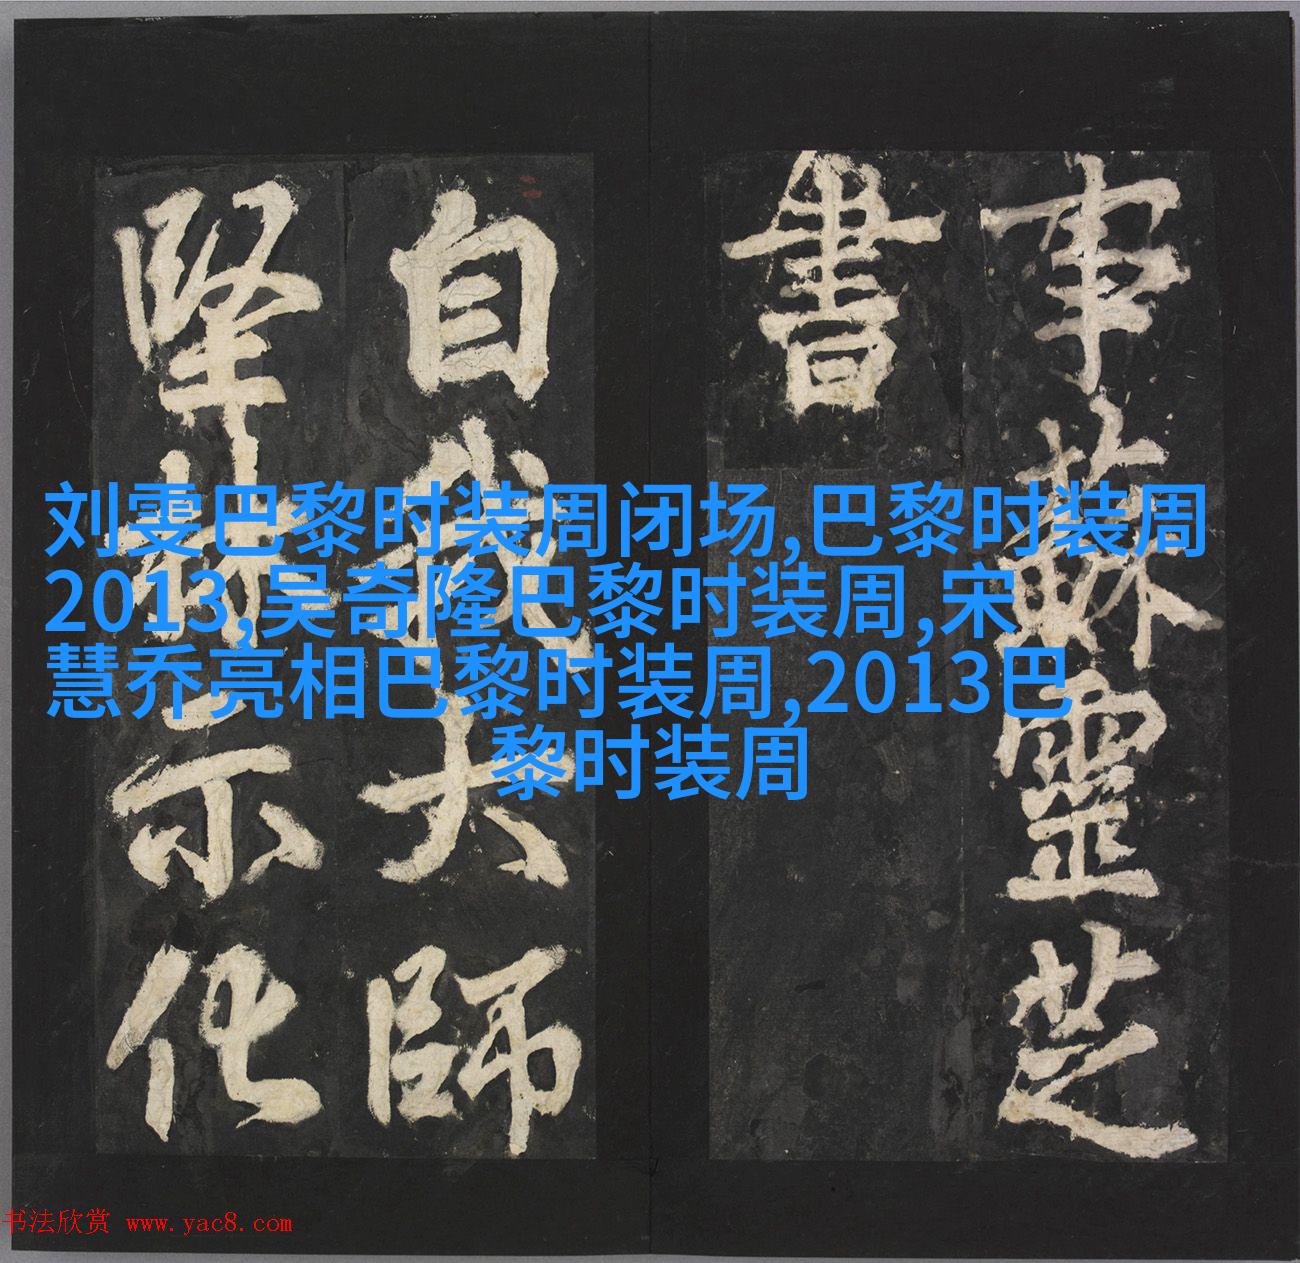 事蘇靈芝
書
自我大師
堅林示化
刘雯巴黎时装周闭场,巴黎时装周
2013,吴奇隆巴黎时装周,宋
慧乔亮相巴黎时装周,2013巴
黎时装周
书法欣赏 www.yac8.com